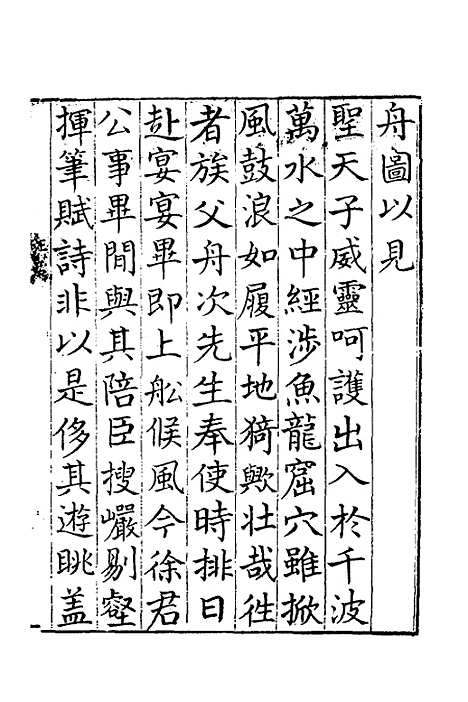 舟圖以見
聖天子威靈呵護出入於千波
萬水之中經涉魚龍窟穴雖掀
風鼓浪如履平地猗歟壯哉徃
者族父舟次先生奉使時排日
赴宴宴畢即上舩候風今徐君
公事畢閒與其陪臣搜巖剔壑
揮筆賦詩非以是侈其遊眺盖